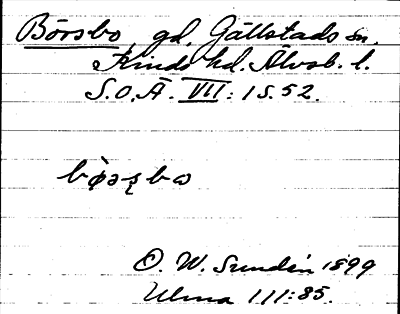 Börsbo gd. Gällstads sn.
Kinds hd. Älvsb. l.
S.O.Ä. VII: 1 S. 52.
bø̀əʂbɷ
O. W. Sundén 1899
Ulma 111:85.